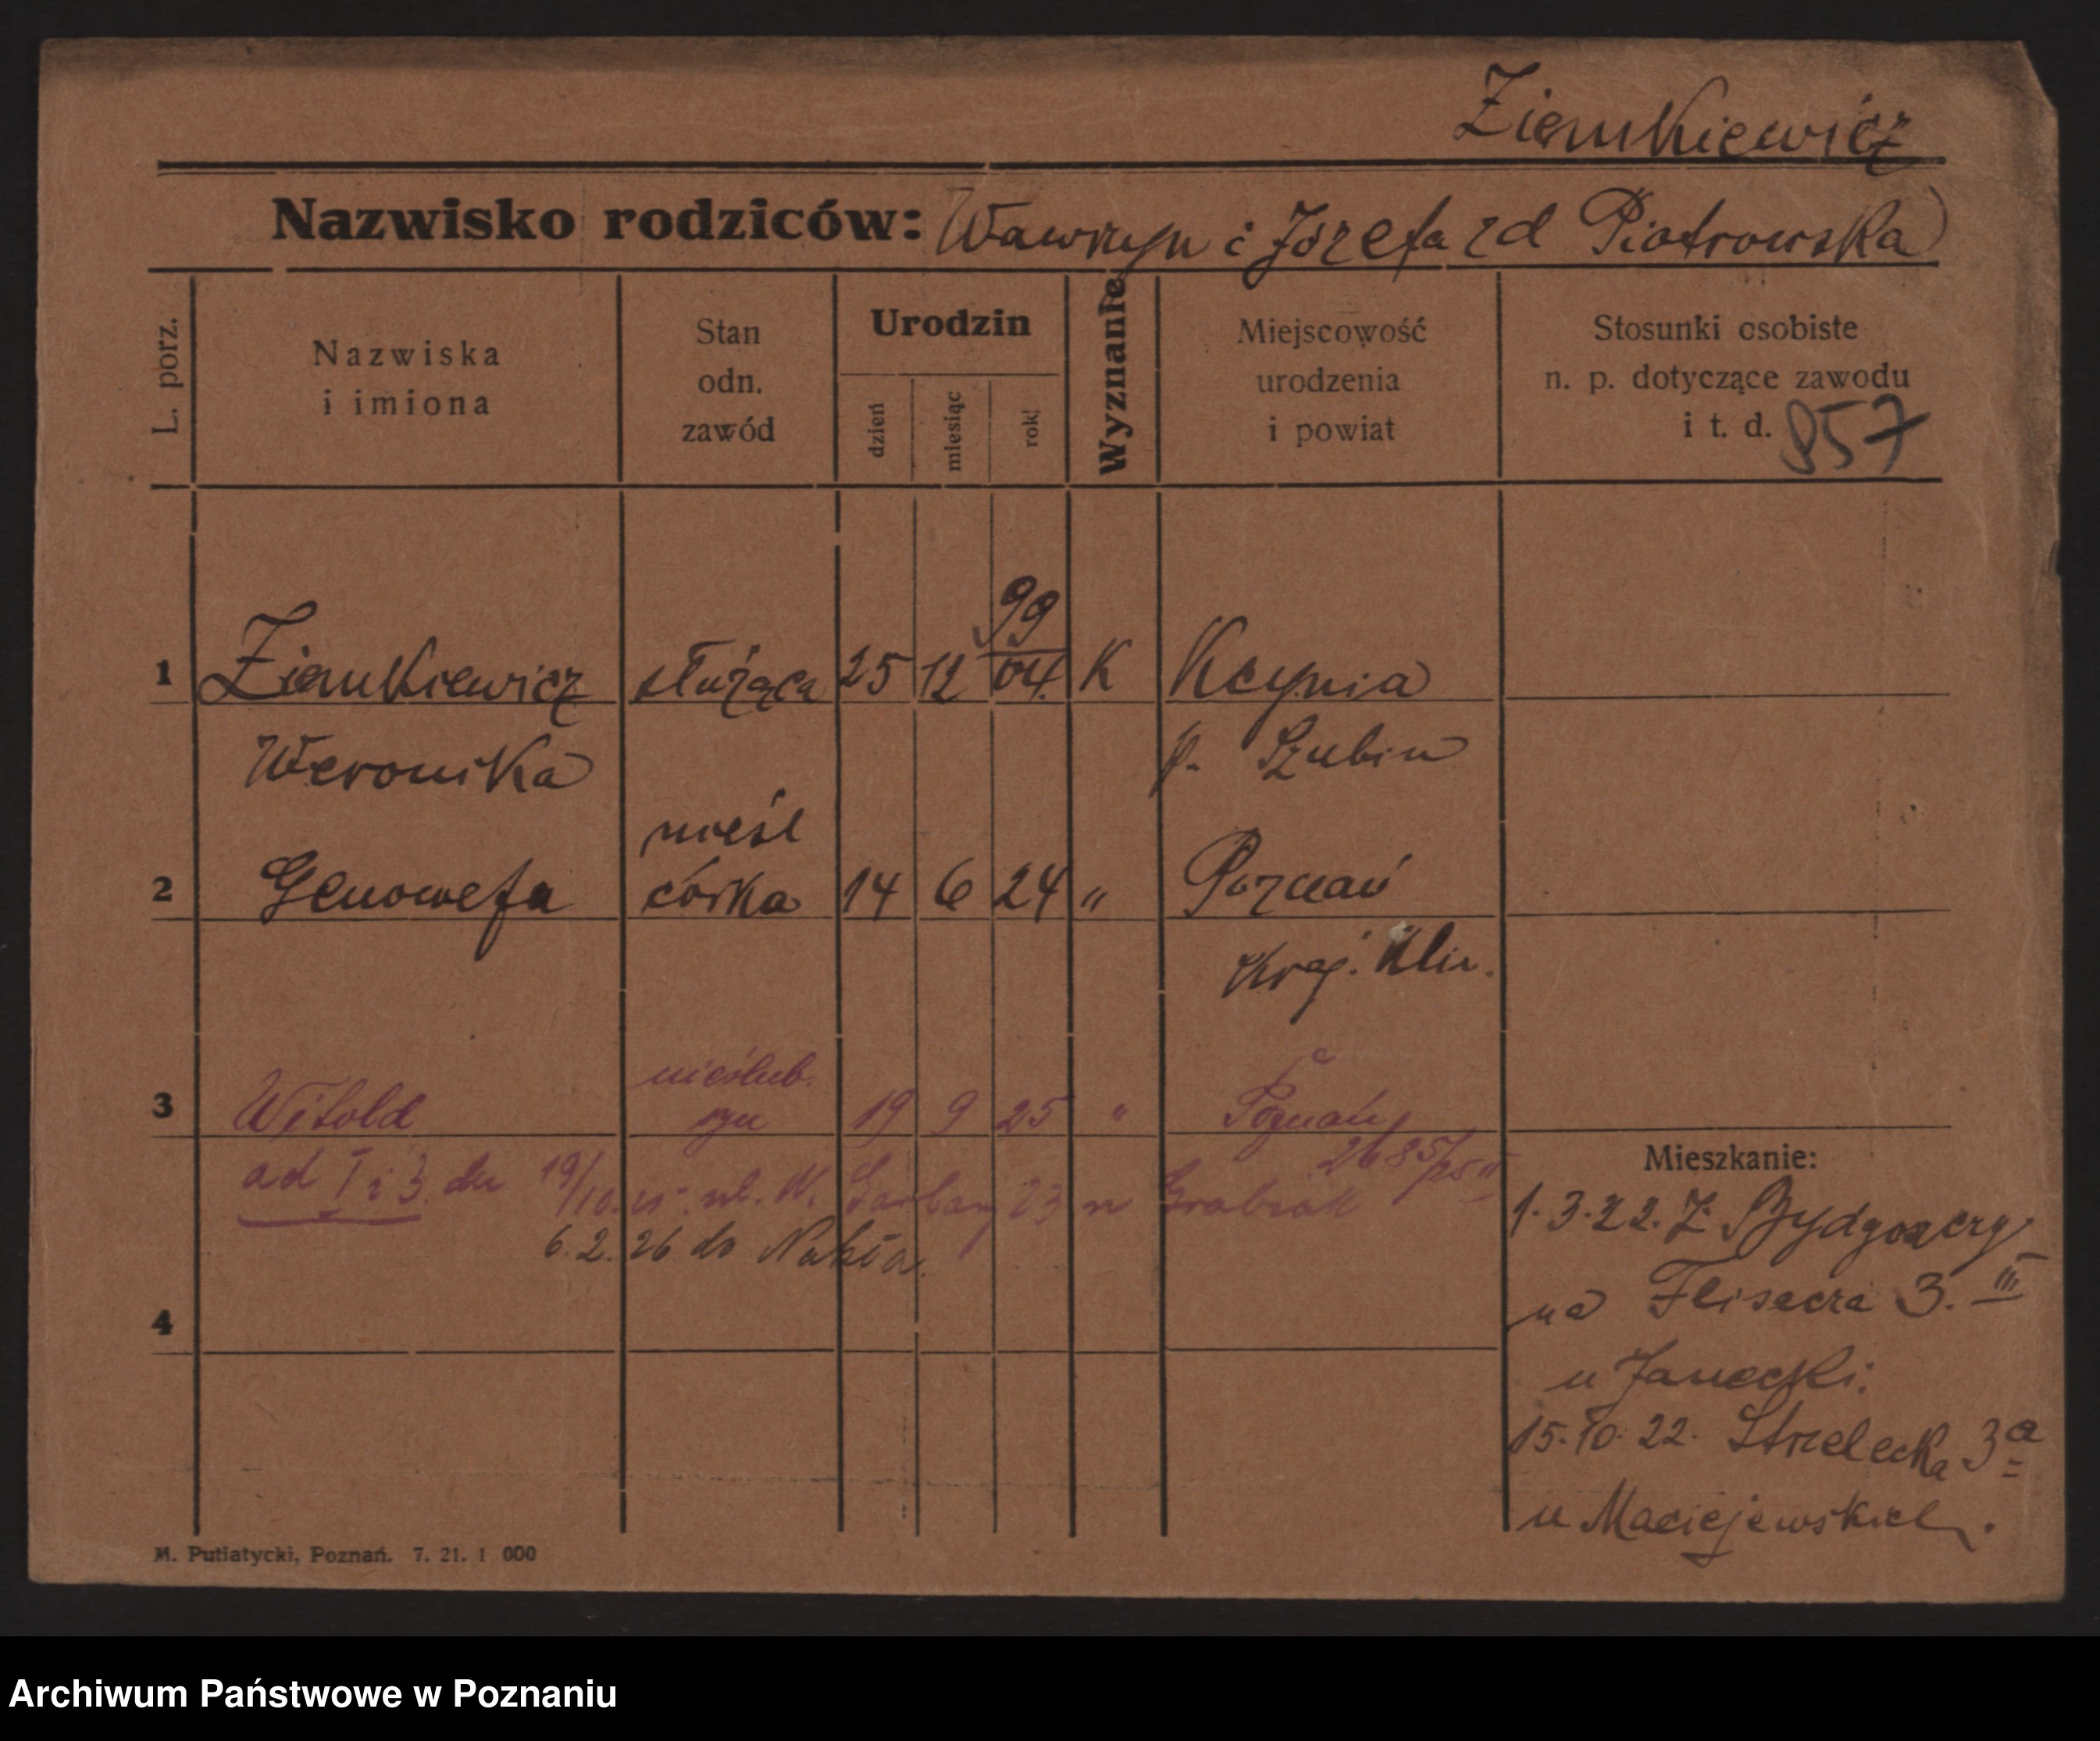 Ziemkiewicz
Nazwisko rodziców: Wawrzyn i Józefa zd Piotrowska
L. porz.
Nazwiska
i imiona
Stan
odn.
zawód
Urodzin
dzień
miesiąc
rok
Wyznanie
Miejscowość
urodzenia
i powiat
Stosunki osobiste
n. p. dotyczące zawodu
i t. d. 857
99
1 Ziemkiewicz służąca 25 12 04. K Kcynia
Weronika p. Szubin
nieśl
2 Genowefa córka 14 6 24 " Poznań
Kraj. Klin.
nieślub.
3 Witold syn 19 9 25 " Poznań
2685/25 II
ad I i 3. 19/10. 25 ul. W. Garbary 23 u Grabiak
6. 2. 26 do Nakła.
4
Mieszkanie:
1. 3. 22. Z Bydgoszczy
na Flisacza 3. III
u Janecki.
15. 10. 22. Strzelecka 3a
u Maciejewskich.
M. Putiatycki, Poznań. 7. 21. 1 000
Archiwum Państwowe w Poznaniu